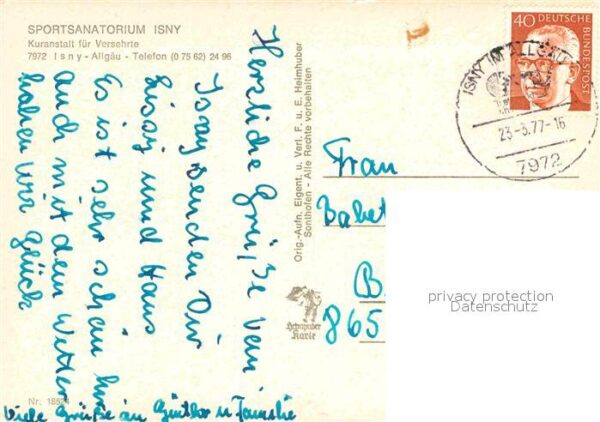 SPORTSANATORIUM ISNY
Kuranstalt für Versehrte
7972 Isny - Allgäu - Telefon (0 75 62) 24 96
Herzliche Grüße von
Isny senden Dir
Sissy und Hans
Es ist sehr schön hier
auch mit dem Wetter
haben wir Glück
Viele Grüße an Günther u Familie
Nr. 1852
Orig.-Aufn. Eigent. u. Verl. F. u. E. Heimhuber
Sonthofen - Alle Rechte vorbehalten
Heimhuber
Karte
40 DEUTSCHE
BUNDESPOST
ISNY IM ALLGÄU
23-3.77-16
7972
Frau
Babet
B
865
privacy protection
Datenschutz